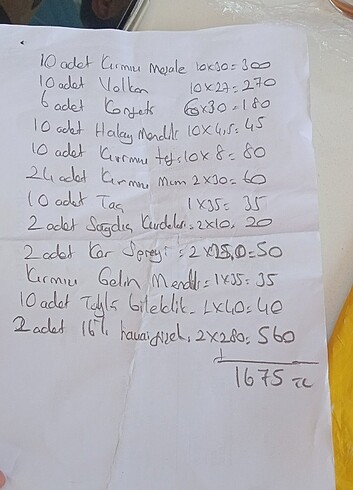 10 adet Kırmızı Meşale 10x30=300
10 adet Volkan 10x27=270
6 adet Konfeti 6x30=180
10 adet Halay Mendili 10x4,5=45
10 adet Kırmızı tef=10x8=80
24 adet Kırmızı Mum 2x30=60
10 adet Taç 1x35=35
2 adet Sağdıç Kurdelesi=2x10=20
2 adet Kar Spreyi=2x25,0=50
Kırmızı Gelin Mendili=1x35=35
10 adet bileklik=1x40=40
2 adet 16'lı havai fişek=2x280=560
1675 TL